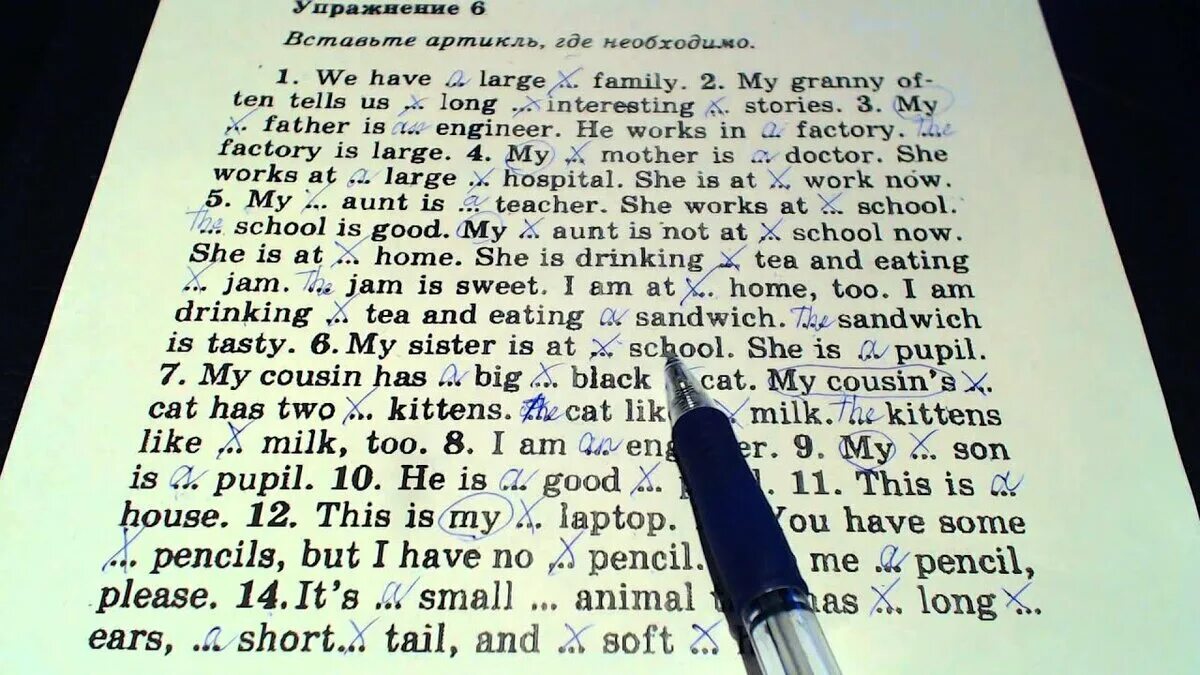 Упражнение 6
Вставьте артикль, где необходимо.
1. We have a large x family. 2. My granny of-
ten tells us x long x interesting x stories. 3. My
x father is an engineer. He works in a factory. The
factory is large. 4. My x mother is a doctor. She
works at a large x hospital. She is at x work now.
5. My x aunt is a teacher. She works at x school.
The school is good. My x aunt is not at x school now.
She is at x home. She is drinking x tea and eating
x jam. The jam is sweet. I am at x home, too. I am
drinking x tea and eating a sandwich. The sandwich
is tasty. 6. My sister is at x school. She is a pupil.
7. My cousin has a big x black cat. My cousin's x
cat has two x kittens. The cat milk. The kittens
like x milk, too. 8. I am an 9. My x son
is a pupil. 10. He is a good x 11. This is a
house. 12. This is my x laptop. You have some
x pencils, but I have no x pencil. me a pencil,
please. 14. It's a small ... animal has x long x
ears, a short x tail, and x soft x